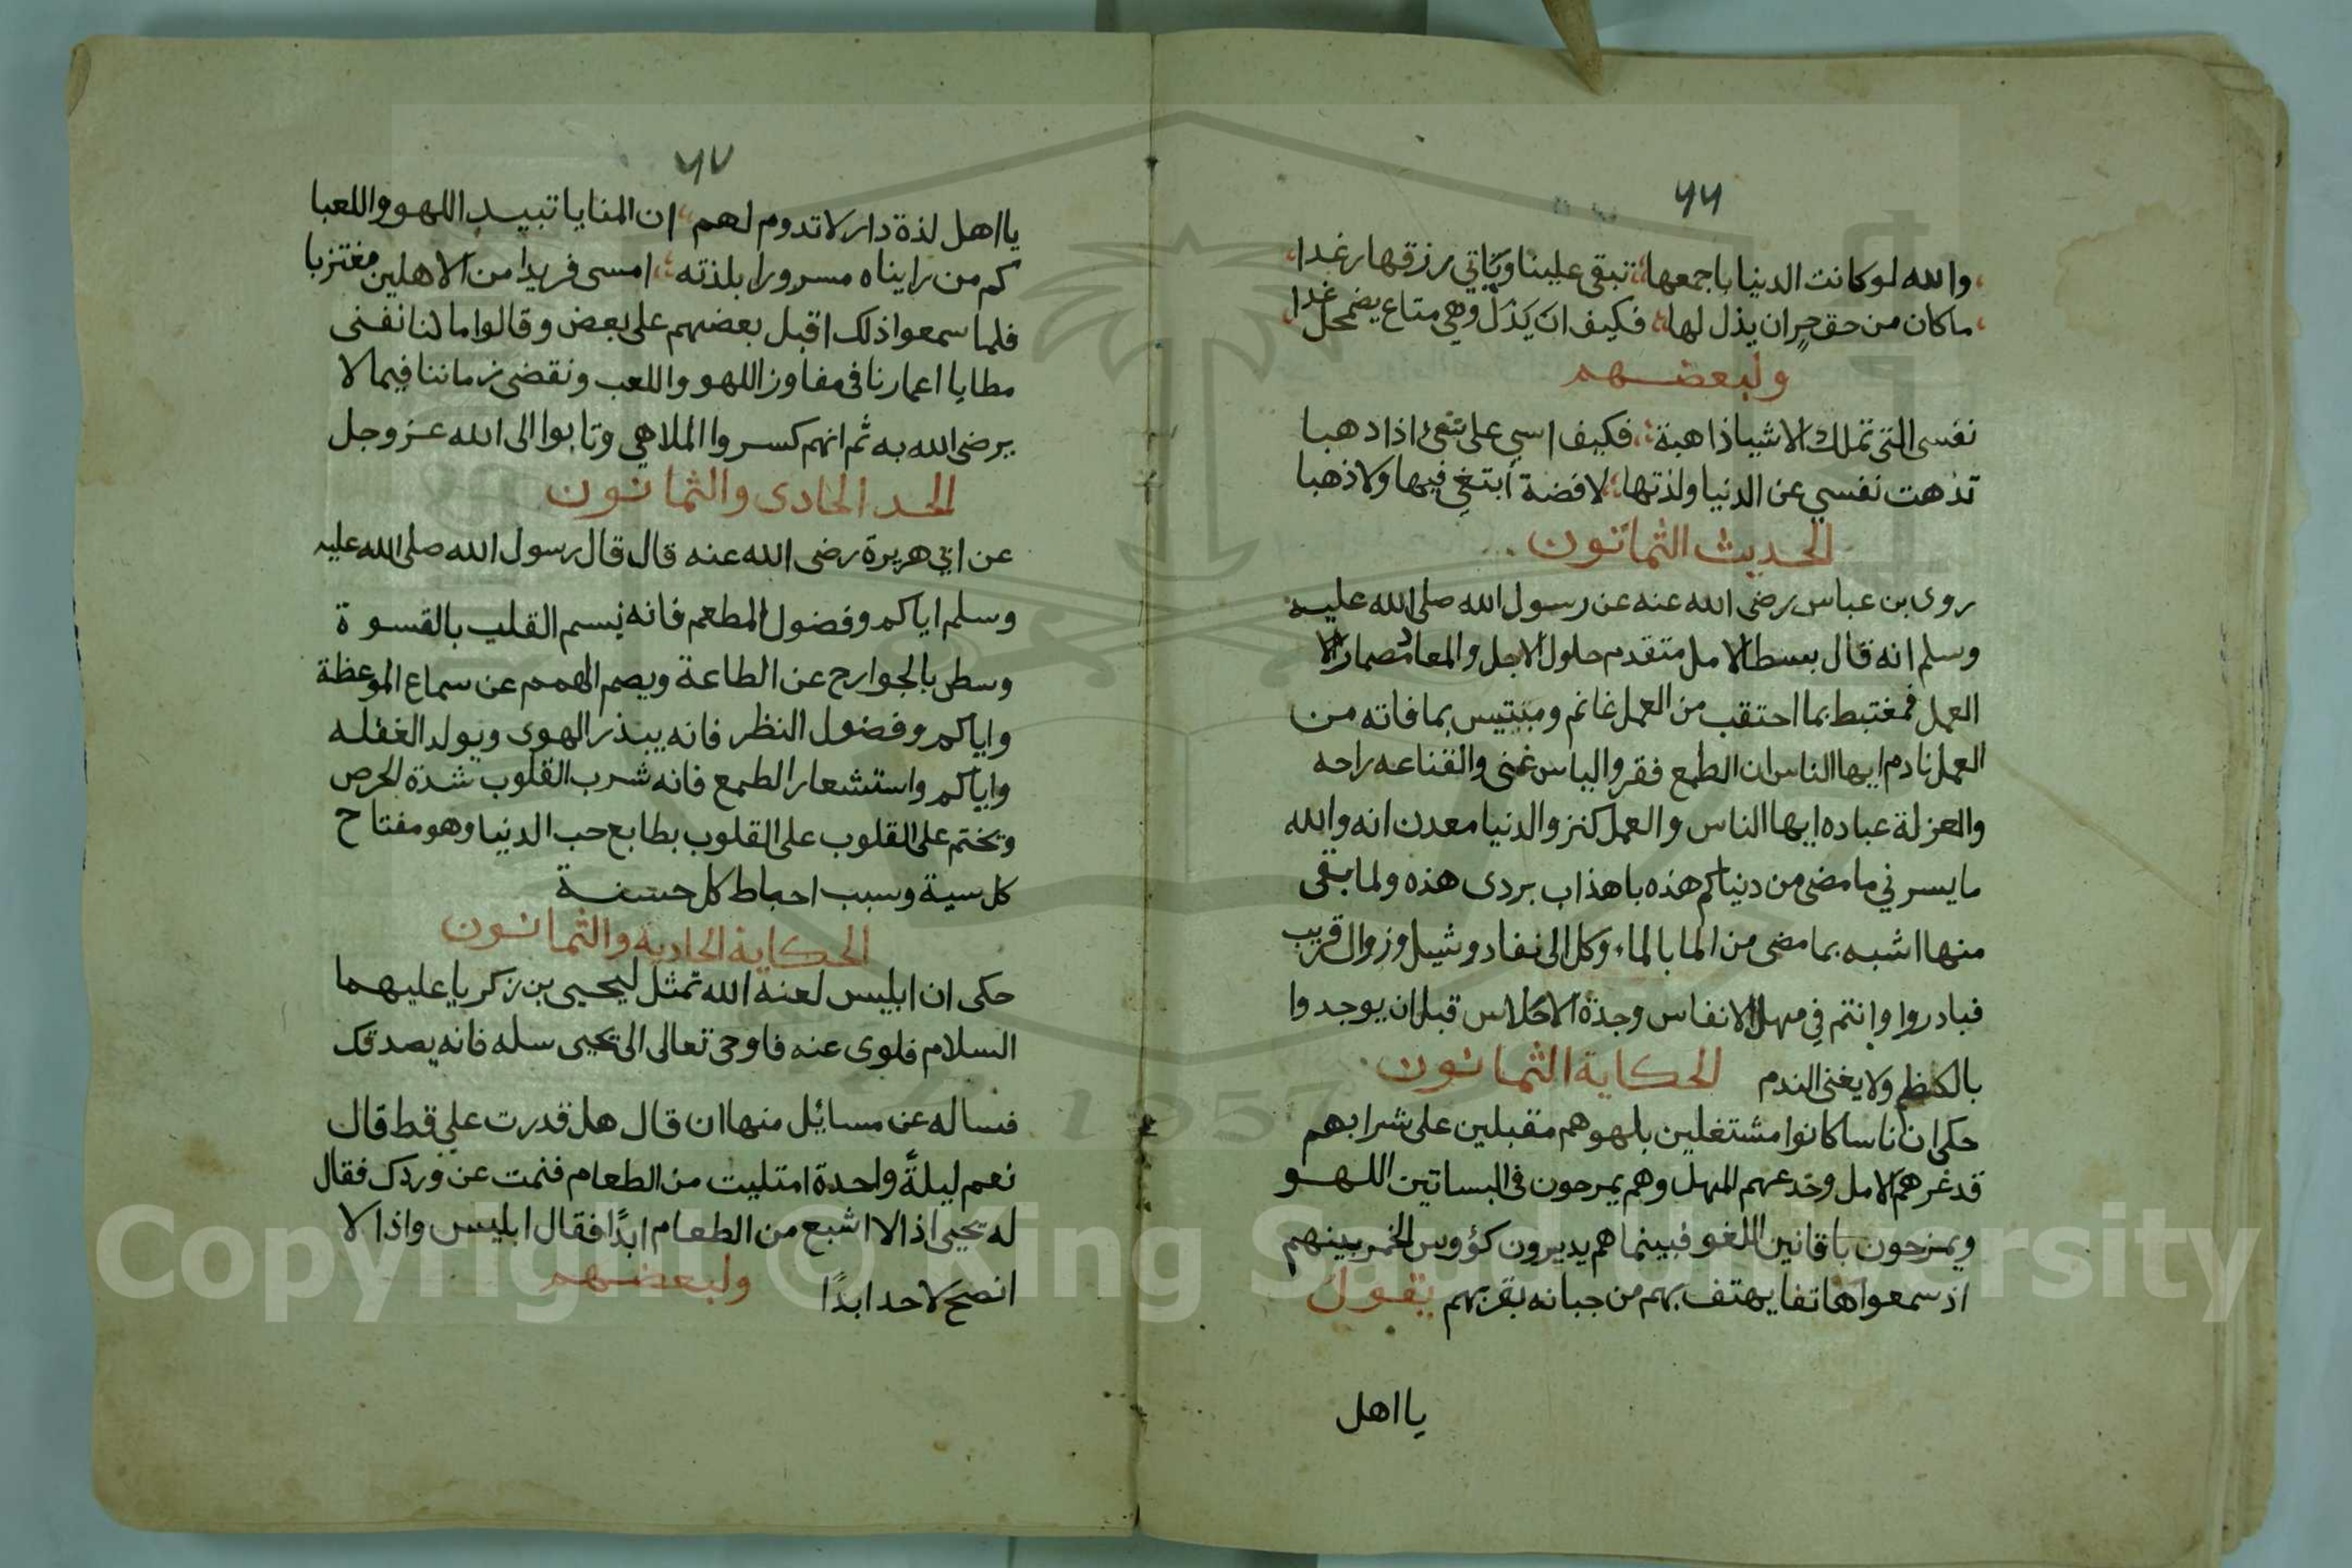 ٦٦
والله لو كانت الدنيا باجمعها تبقى علينا ويأتي رزقها رغدا
ما كان من حق حر ان يذل لها فكيف ان يذل وهي متاع يضمحل غدا
ولبعضهم
نفسى التى تملك الاشيا ذاهبة فكيف اسي على شئ اذا دهبا
تذهت نفسي عن الدنيا ولذتها لا فضة أبتغي فيها ولا ذهبا
الحديث الثمانون
روى بن عباس رضى الله عنه عن رسول الله صلى الله عليه
وسلم انه قال بسط الامل متقدم حلول الاجل والمعاد مضمار الا
العمل فمغتبط بما احتقب من العمل غانم ومبتيس بما فاته من
العمل نادم ايها الناس ان الطمع فقر والياس غنى والقناعه راحه
والعزلة عباده ايها الناس والعمل كنز والدنيا معدن انه والله
ما يسرني ما مضى من دنياكم هذه باهذاب بردى هذه ولما بقى
منها اشبه بما مضى من الما بالماء وكل الى نفاد وشيل وزوال قريب
فبادروا وانتم في مهل الانفاس وجدة الاحلاس قبل ان يوجدوا
بالكظم ولا يغنى الندم الحكاية الثمانون
حكى ان أناسا كانوا مشتغلين بلهوهم مقبلين على شرابهم
قد غرهم الامل وخدعهم المهل وهم يمرحون فى البساتين اللهو
ويمزحون بافانين اللغو فبينما هم يديرون كؤوس الخمر بينهم
اذ سمعوا هاتفا يهتف بهم من جبانه بقربهم يقول
يا اهل
٦٧
يا اهل لذة دار لا تدوم لهم ان المنايا تبيد اللهو واللعبا
كم من رايناه مسرورا بلذته امسى فريدا من الاهلين مغتربا
فلما سمعوا ذلك اقبل بعضهم على بعض وقالوا ما لنا نفنى
مطايا اعمارنا فى مفاوز اللهو واللعب ونقضى زماننا فيما لا
يرضى الله به ثم انهم كسروا الملاهي وتابوا الى الله عز وجل
الحد الحادى والثمانون
عن ابي هريرة رضى الله عنه قال قال رسول الله صلى الله عليه
وسلم اياكم وفضول المطعم فانه يسم القلب بالقسوة
وسطى بالجوارح عن الطاعة ويصم الهمم عن سماع الموعظة
واياكم وفضول النظر فانه يبذر الهوى ويولد الغفله
واياكم واستشعار الطمع فانه شرب القلوب شدة الحرص
وتختم على القلوب على القلوب بطابع حب الدنيا وهو مفتاح
كل سية وسبب احباط كل حسنة
الحكاية الحادية والثمانون
حكى ان ابليس لعنه الله تمثل ليحيى بن زكريا عليهما
السلام فلوى عنه فاوحى تعالى الى يحيى سله فانه يصدقك
فساله عن مسائل منها ان قال هل قدرت علي قط قال
نعم ليلةً واحدة امتليت من الطعام فنمت عن وردك فقال
له يحيى اذا لا اشبع من الطعام ابدًا فقال ابليس واذا لا
انصح لاحد ابدًا ولبعضهم
Copyright © King Saud University
1957